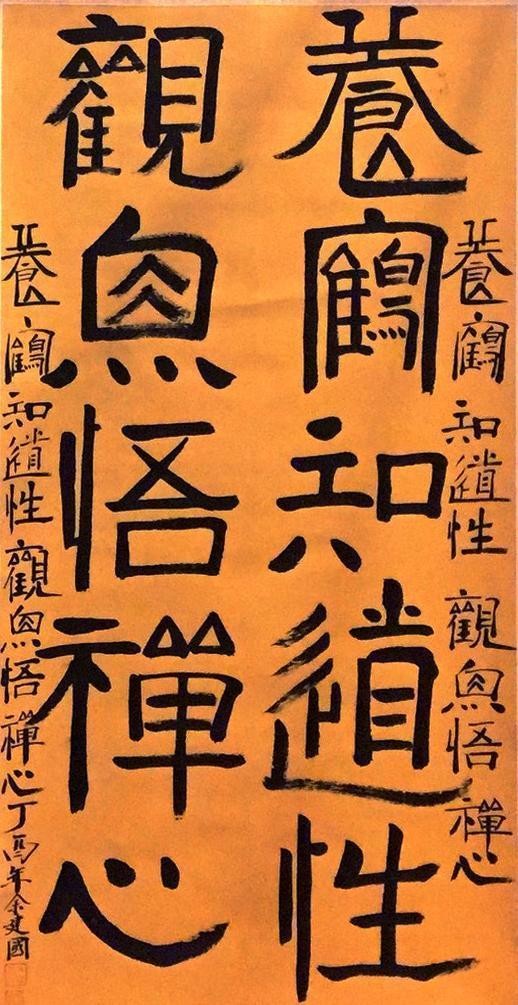 養鶴知道性觀魚悟禪心
養鶴知道性
觀魚悟禪心
養鶴知道性觀魚悟禪心丁酉年余建國